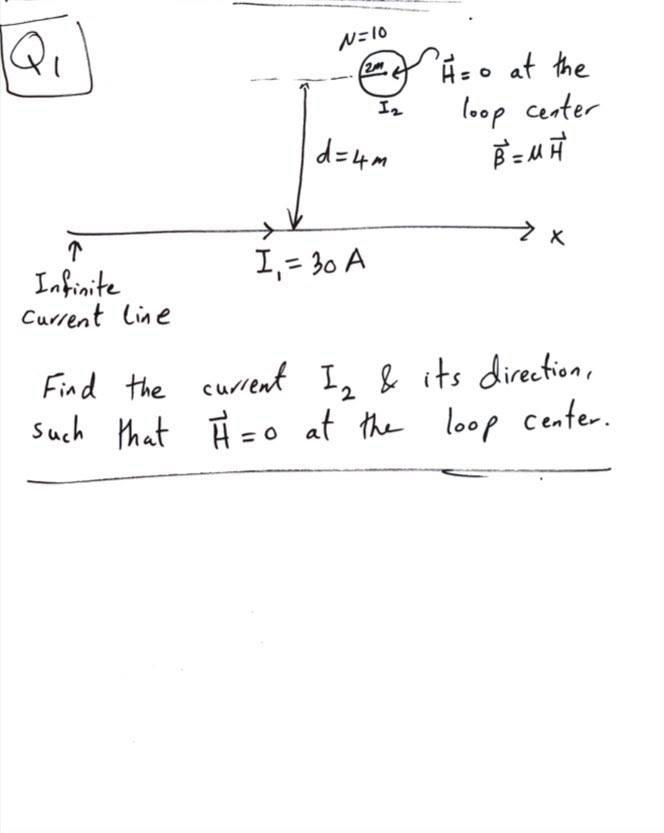 Q1
N=10
2m
H⃗=0 at the
I2
loop center
d=4m
B⃗=μH⃗
x
I1=30A
Infinite
Current line
Find the current I2 & its direction,
such that H⃗=0 at the loop center.